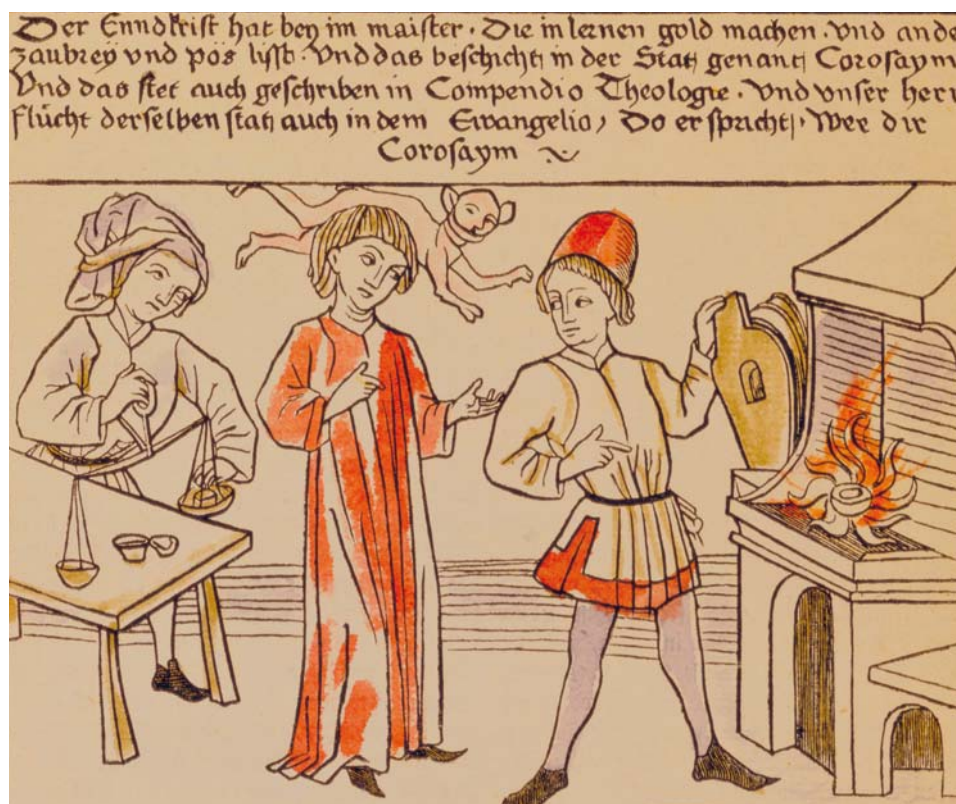 Der Enndkrist hat bey im maister · Die in lernen gold machen · vnd ande
zaubrey vnd pös lysst · Vnd das beschicht in der Stat genant Corosaym
Vnd das stet auch geschriben in Compendio Theologie · Vnd vnser herr
flucht derselben stat auch in dem Ewangelio / Do er spricht · Wee dir
Corosaym